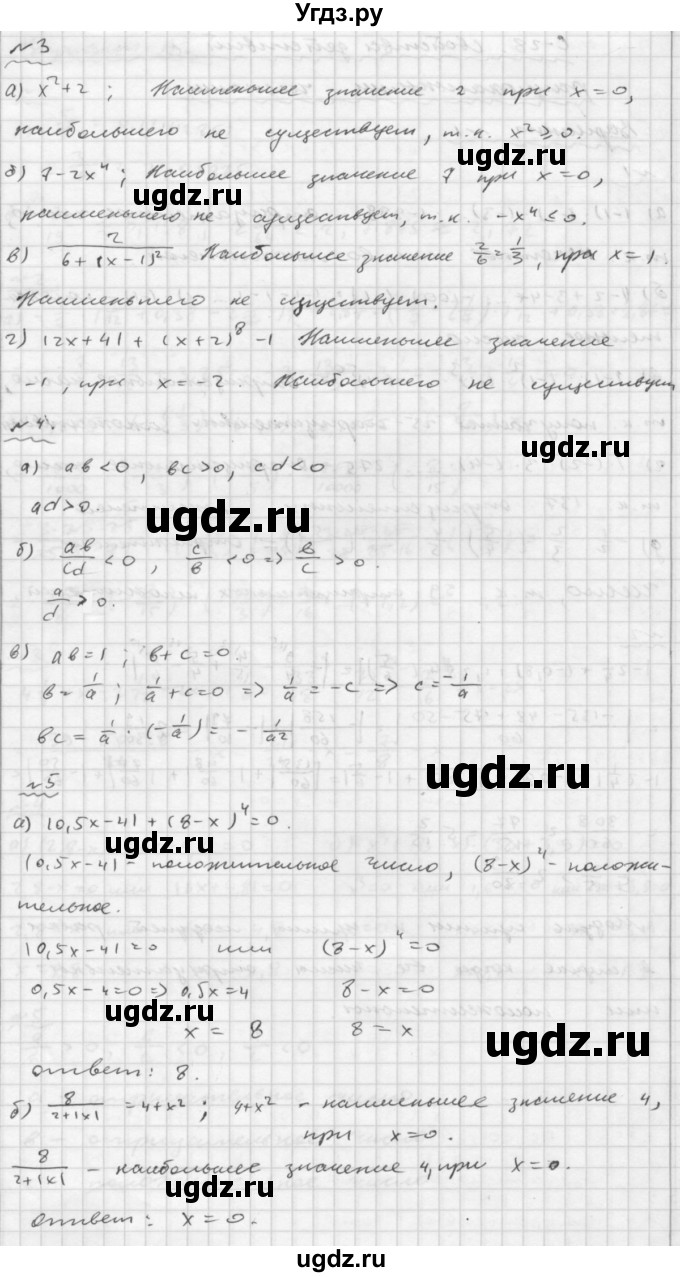 Угдз.ру
№3
а) x²+2 ; Наименьшее значение 2 при x=0,
наибольшего не существует, т.к. x²≥0.
б) 7-2x⁴ ; Наибольшее значение 7 при x=0,
наименьшего не существует, т.к. -x⁴≤0.
в) 2/(6+(x-1)²) Наибольшее значение 2/6=1/3, при x=1.
Наименьшего не существует.
г) |2x+4|+(x+2)⁸-1 Наименьшее значение
-1, при x=-2 Наибольшего не существует
№4.
а) ab<0, bc>0, cd<0
ad>0.
б) ab/cd<0, c/b<0=>b/c>0.
a/d>0.
в) ab=1; b+c=0.
b=1/a; 1/a+c=0 => 1/a=-c => c=-1/a
bc=1/a·(-1/a)=-1/a²
№5
а) |0,5x-4|+(8-x)⁴=0.
|0,5x-4|-положительное число, (8-x)⁴-положи-
тельное.
|0,5x-4|=0 или (8-x)⁴=0
0,5x-4=0=>0,5x=4 8-x=0
x=8 8=x
ответ: 8.
б) 8/(2+|x|)=4+x²; 4+x² - наименьшее значение 4,
при x=0.
8/(2+|x|) - наибольшее значение 4, при x=0.
ответ: x=0.
ugdz.ru
ugdz.ru
ugdz.ru
ugdz.ru
ugdz.ru
ugdz.ru
ugdz.ru
ugdz.ru
ugdz.ru